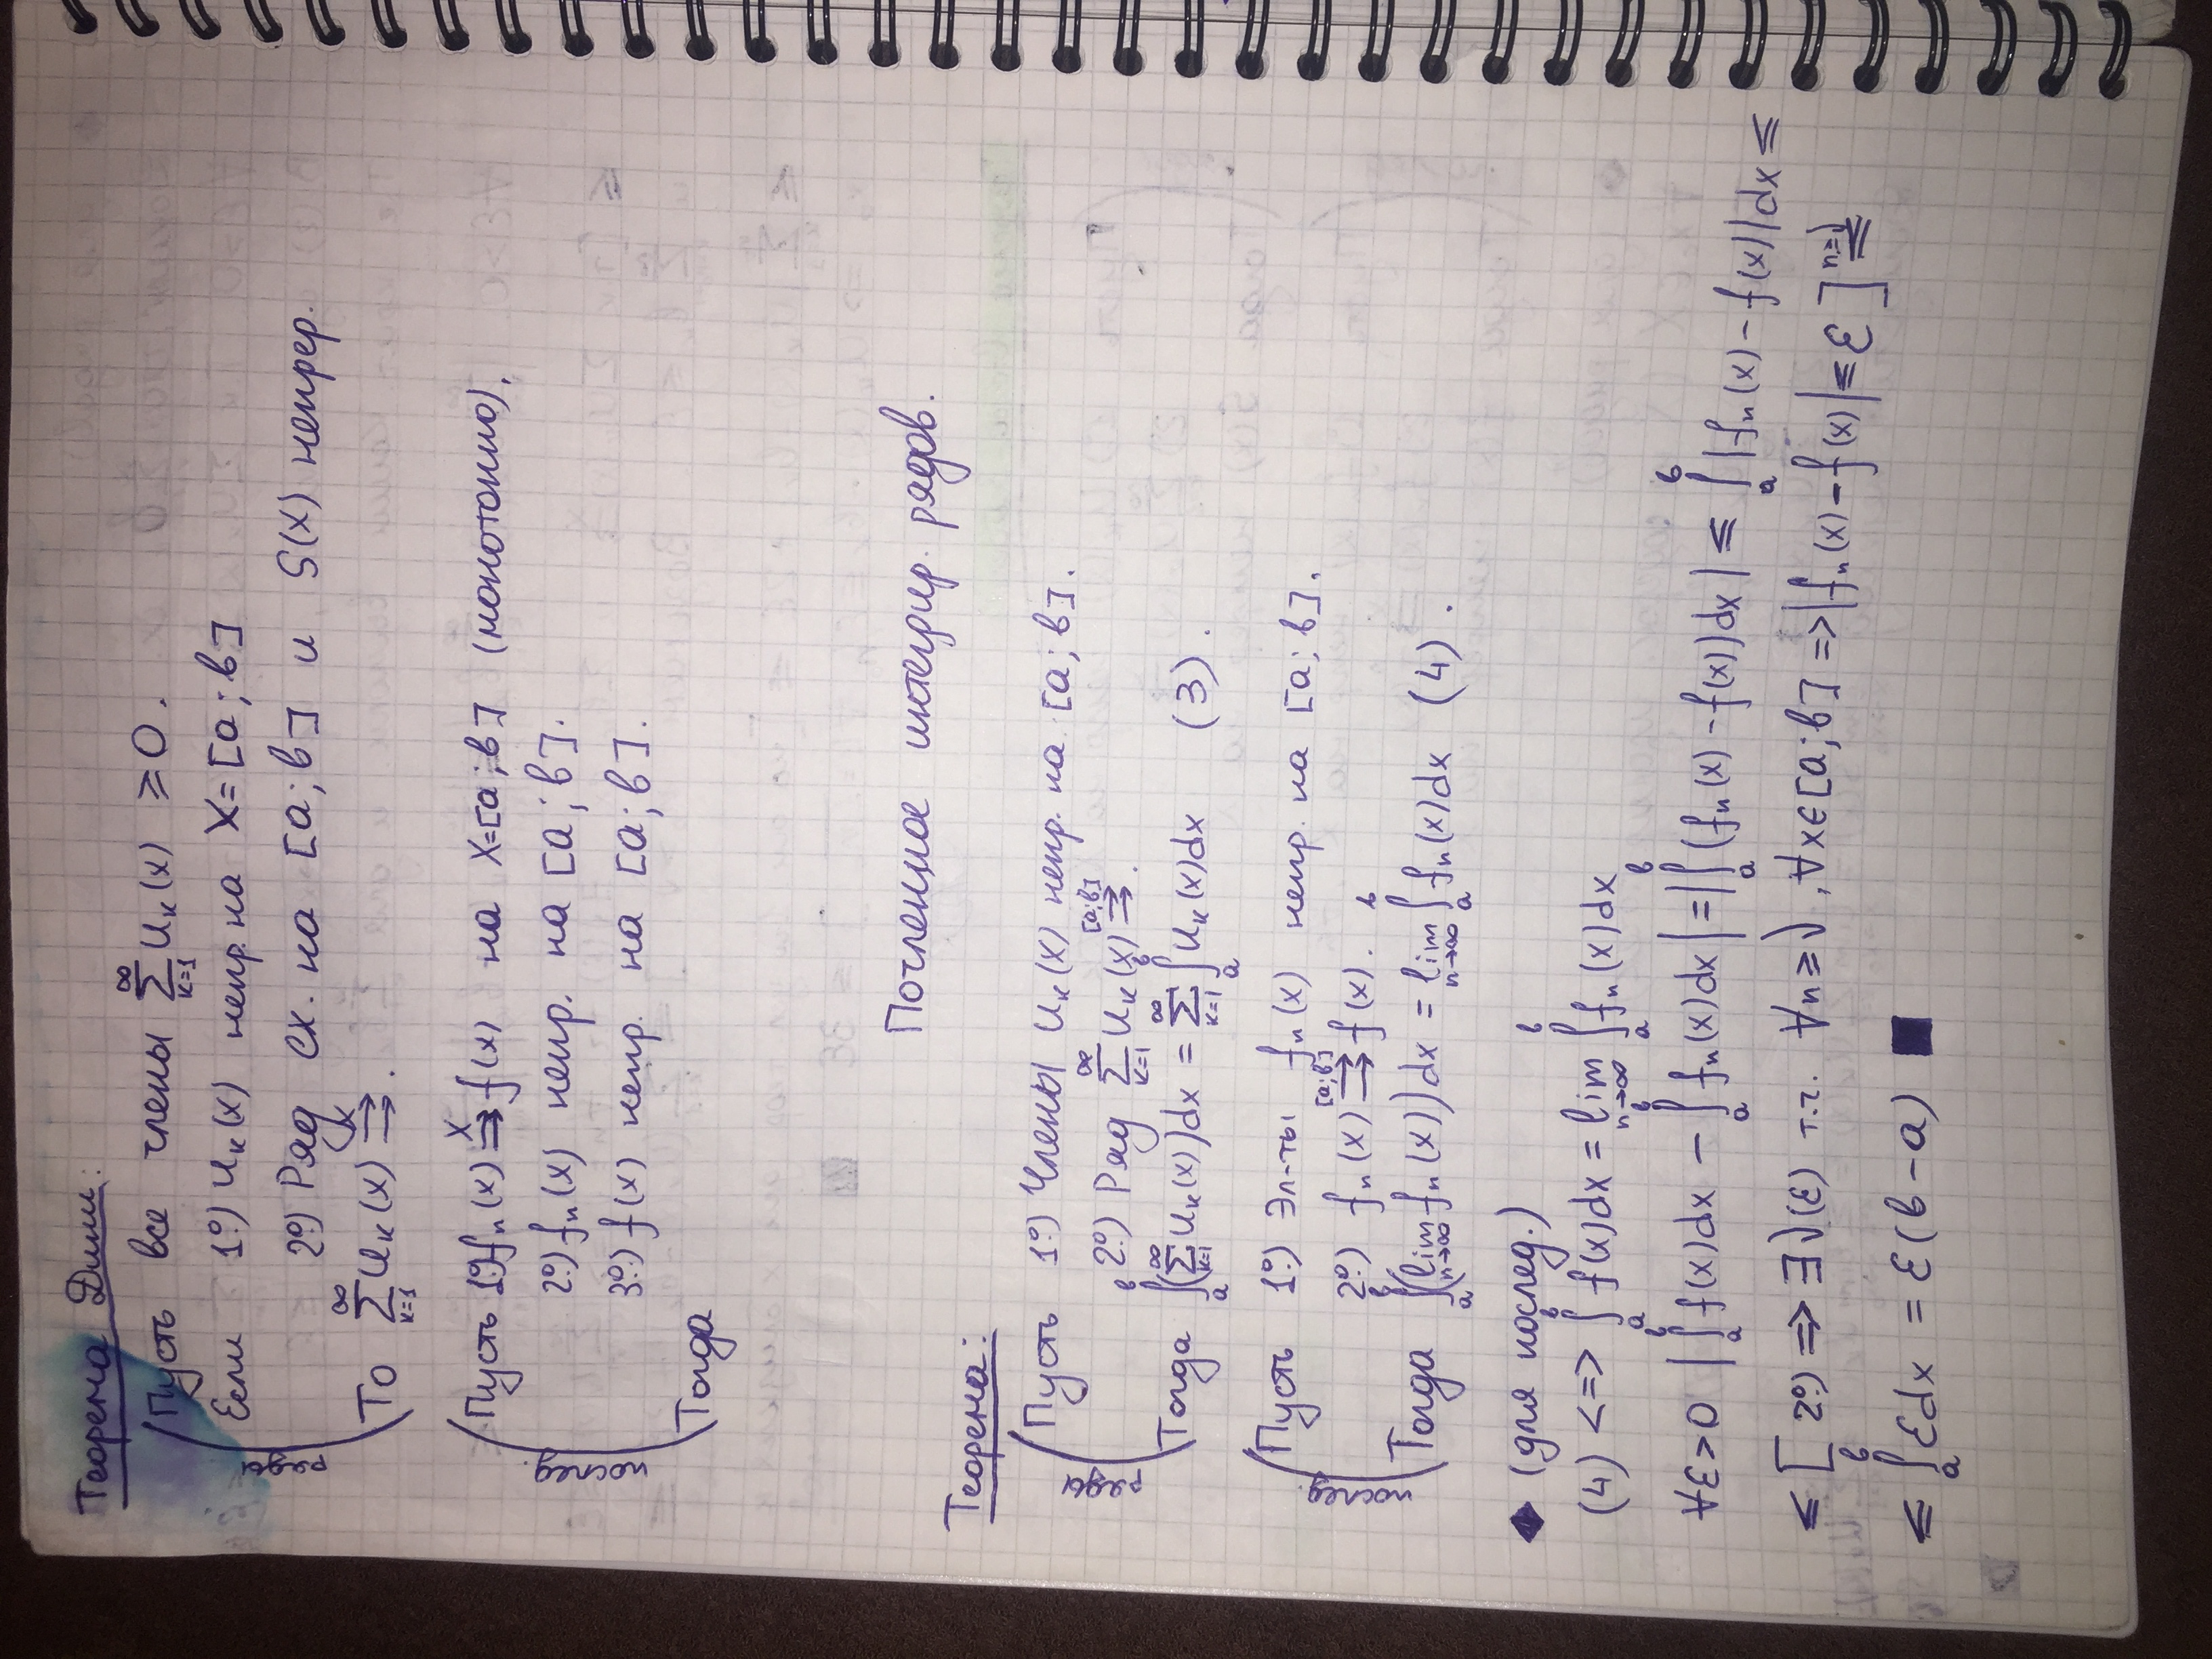 Теорема Дини:
ряды
Пусть все члены ∑_{k=1}^{∞} u_k(x) ⩾ 0.
Если 1º.) u_k(x) непр. на X=[a;b]
2º.) Ряд сх. на [a;b] и S(x) непрер.
То ∑_{k=1}^{∞} u_k(x) ⇉^{X}.
послед.
Пусть 1º.) f_n(x) →^{X} f(x) на X=[a;b] (монотонно),
2º.) f_n(x) непр. на [a;b].
3º.) f(x) непр. на [a;b].
Тогда
Почленное интегрир. рядов.
Теорема:
ряды
Пусть 1º.) Члены u_k(x) непр. на [a;b].
2º.) Ряд ∑_{k=1}^{∞} u_k(x) ⇉^{[a;b]}.
Тогда ∫_a^b (∑_{k=1}^{∞} u_k(x))dx = ∑_{k=1}^{∞} ∫_a^b u_k(x)dx (3).
послед.
Пусть 1º.) Эл-ты f_n(x) непр. на [a;b].
2º.) f_n(x) ⇉^{[a;b]} f(x).
Тогда ∫_a^b (lim_{n→∞} f_n(x))dx = lim_{n→∞} ∫_a^b f_n(x)dx (4).
◆ (для послед.)
(4) <=> ∫_a^b f(x)dx = lim_{n→∞} ∫_a^b f_n(x)dx
∀ε>0 |∫_a^b f(x)dx − ∫_a^b f_n(x)dx| = |∫_a^b (f_n(x) − f(x))dx| ⩽ ∫_a^b |f_n(x) − f(x)|dx ⩽
⩽ [2º.) => ∃ν(ε) т.ч. ∀n⩾ν, ∀x∈[a;b] => |f_n(x) − f(x)| ⩽ ε] ⩽^{n⩾ν}
⩽ ∫_a^b εdx = ε(b−a) ■